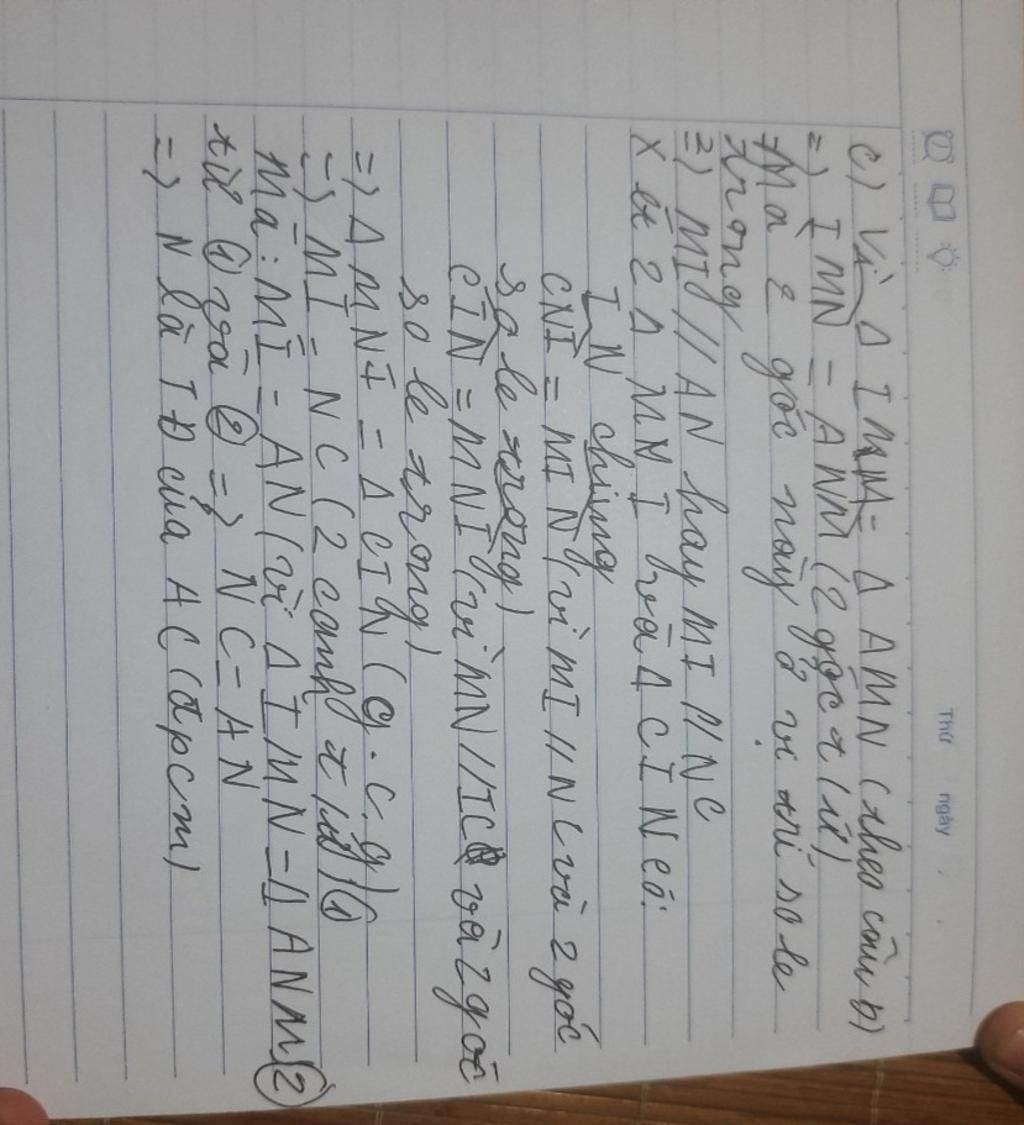 Thứ ngày
c) Vì Δ IMN = Δ AMN (theo câu b)
=) IMN = ANM (2 góc t/ứ)
+Mà 2 góc này ở vị trí so le
trong
=) MI // AN hay MI // NC
Xét 2 Δ MNI và Δ CIN có:
IN chung
CNI = MIN (vì MI // NC và 2 góc
so le trong)
CIN = MNI (vì MN // IC và 2 góc
so le trong)
=) Δ MNI = Δ CIN (g.c.g)
=) MI = NC (2 cạnh t/ứ) (1)
Mà: MI = AN (vì Δ IMN = Δ ANM) (2)
từ (1) và (2) =) NC = AN
=) N là TĐ của AC (đpcm)